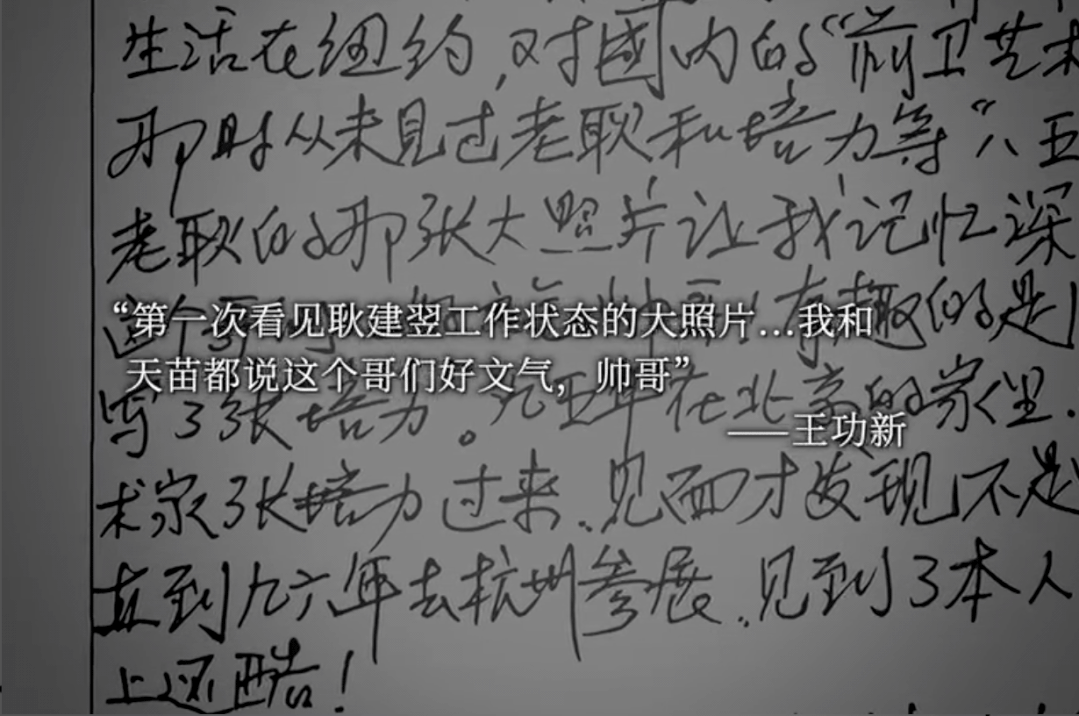 生活在纽约，对國内的“前卫艺术
那时从未见过老耿和培力等“八五
老耿的那张大照片让我记忆深
“第一次看见耿建翌工作状态的大照片...我和
有趣的是
天苗都说这个哥们好文气，帅哥”
写了张培力。九五年在北京的家里.
——王功新
术家张培力过来.见面才发现不是
直到九六年去杭州参展.见到了本人
上还酷！